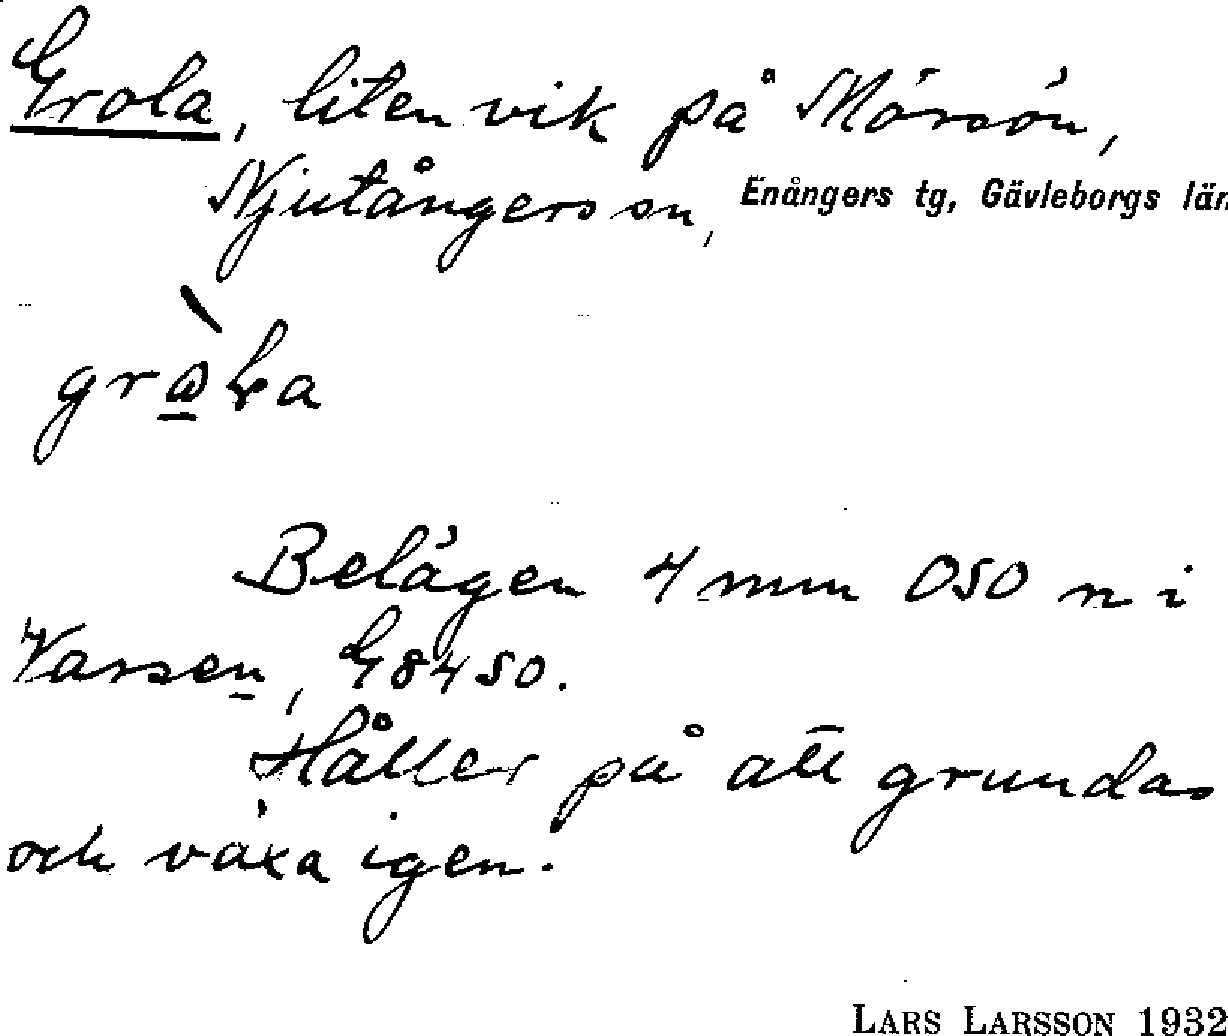 Grola, liten vik på Mörsön,
Njutångers sn, Enångers tg, Gävleborgs län
Belägen 4 mm OSO n i
Vassen, G8450.
Håller på att grundas
och växa igen.
LARS LARSSON 1932